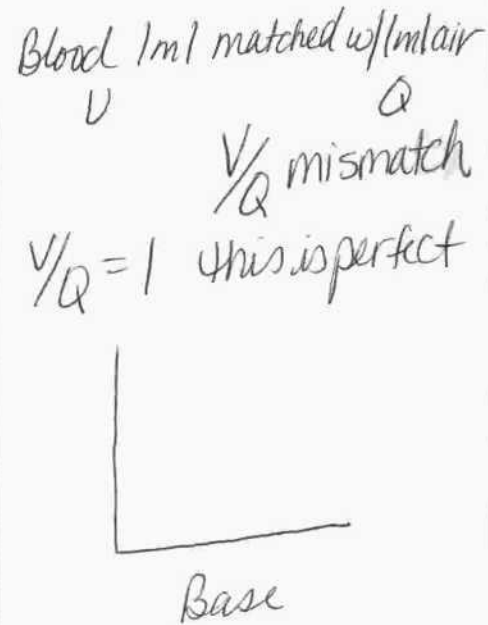 Blood 1ml matched w/1ml air
V Q
V/Q mismatch
V/Q = 1 this is perfect
Base